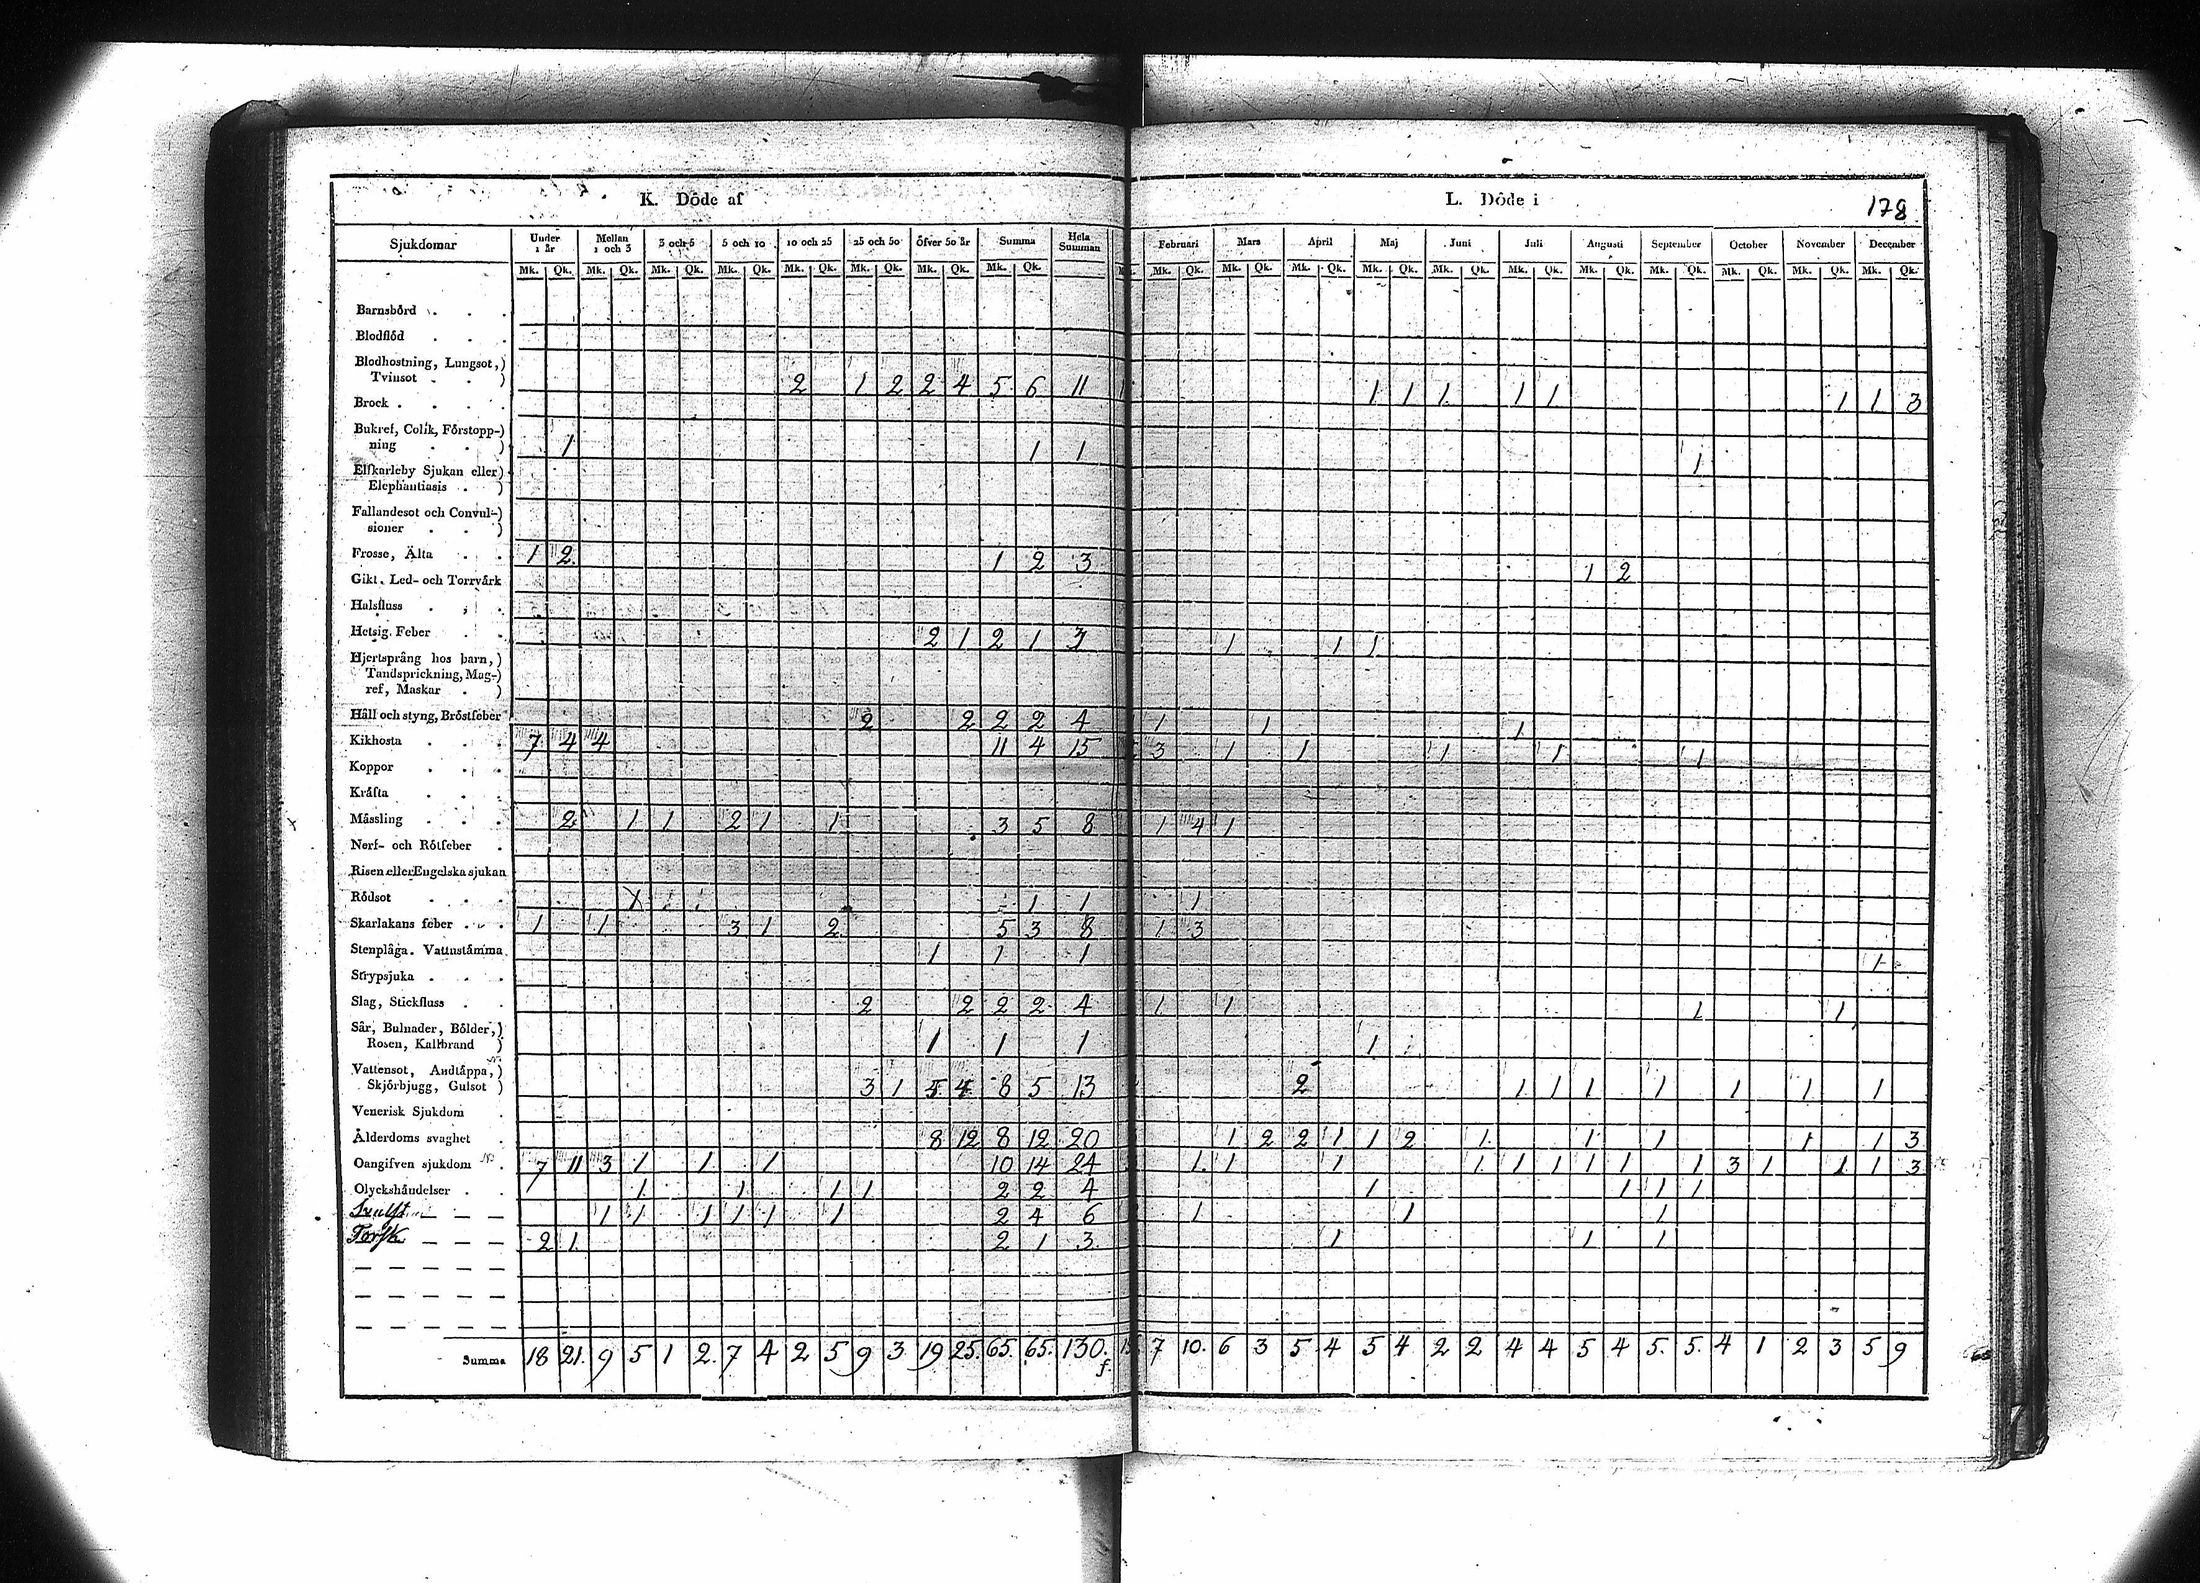 K. Döde af
L. Döde i
178
Sjukdomar Under 1 år Mellan 1 och 3 3 och 5 5 och 10 10 och 25 25 och 50 Öfver 50 år Summa Hela Summan Februari Mars April Maj Juni Juli Augusti September October November December
Mk. Qk. Mk. Qk. Mk. Qk. Mk. Qk. Mk. Qk. Mk. Qk. Mk. Qk. Mk. Qk. Mk. Qk. Mk. Qk. Mk. Qk. Mk. Qk. Mk. Qk. Mk. Qk. Mk. Qk. Mk. Qk. Mk. Qk. Mk. Qk. Mk. Qk.
Barnsbörd . . .
Blodflöd . . .
Blodhostning, Lungsot,)
Tvinsot . . ) 2 1 2 2 4 5 6 11 1 1 1 1 1 1 1 3
Brock . . . .
Bukref, Colik, Förstopp-)
ning . . ) 1 1 1 1
Elfkarleby Sjukan eller)
Elephantiasis . )
Fallandesot och Convul-)
sioner . . )
Frosse, Älta . . 1 2 1 2 3 1 2
Gikt, Led- och Torrvärk
Halsfluss . . .
Hetsig Feber . . 2 1 2 1 3 1 1 1
Hjertsprång hos barn,)
Tandsprickning, Mag-)
ref, Maskar . )
Håll och styng, Bröstfeber 2 2 2 2 4 1 1 1
Kikhosta . . . 7 4 4 11 4 15 3 1 1 1 1 1
Koppor . . .
Kräfta . . .
Mässling . . . 2 1 1 2 1 1 3 5 8 1 4 1
Nerf- och Rötfeber .
Risen eller Engelska sjukan
Rödsot . . . 1 1 1
Skarlakans feber . . . 1 1 3 1 2 5 3 8 1 3
Stenplåga. Vattustämma 1 1 1 1
Strypsjuka . . .
Slag, Stickfluss . . 2 2 2 2 4 1 1 1 1
Sår, Bulnader, Bölder,)
Rosen, Kallbrand ) 1 1 1 1
Vattensot, Andtäppa,)
Skjörbjugg, Gulsot ) 3 1 5 4 8 5 13 2 1 1 1 1 1 1 1
Venerisk Sjukdom .
Ålderdoms svaghet . 8 12 8 12 20 1 2 2 1 1 2 1 1 1 1 1 3
Oangifven sjukdom . 7 11 3 1 1 1 10 14 24 1 1 1 1 1 1 1 1 1 3 1 1 1 3
Olyckshändelser . . 1 1 1 1 2 2 4 1 1 1 1
Svulst 1 1 1 1 1 1 2 4 6 1 1 1
Torsk 2 1 2 1 3 1 1 1
Summa 18 21. 9 5 1 2. 7 4 2 5 9 3 19 25. 65. 65. 130. 7 10. 6 3 5 4 5 4 2 2 4 4 5 4 5. 5. 4 1 2 3 5 9